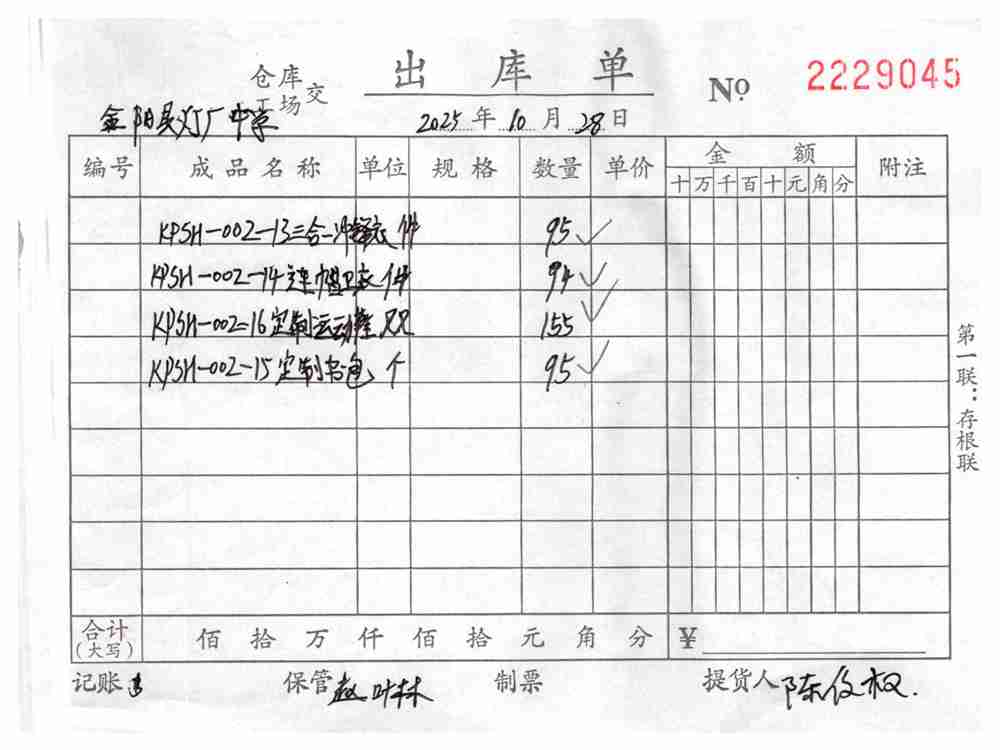 出库单
仓库
工场交
No 2229045
金阳县灯厂中学
2025年10月28日
编号 成品名称 单位 规格 数量 单价 金额 附注
十万千百十元角分
KPSH-002-13三合一冲锋衣 件 95
KPSH-002-14连帽卫衣 件 94
KPSH-002-16定制运动鞋 双 155
KPSH-002-15定制书包 个 95
第一联：存根联
合计
(大写) 佰拾万仟佰拾元角分 ¥
记账 保管 赵叶林 制票 提货人 陈仪权.